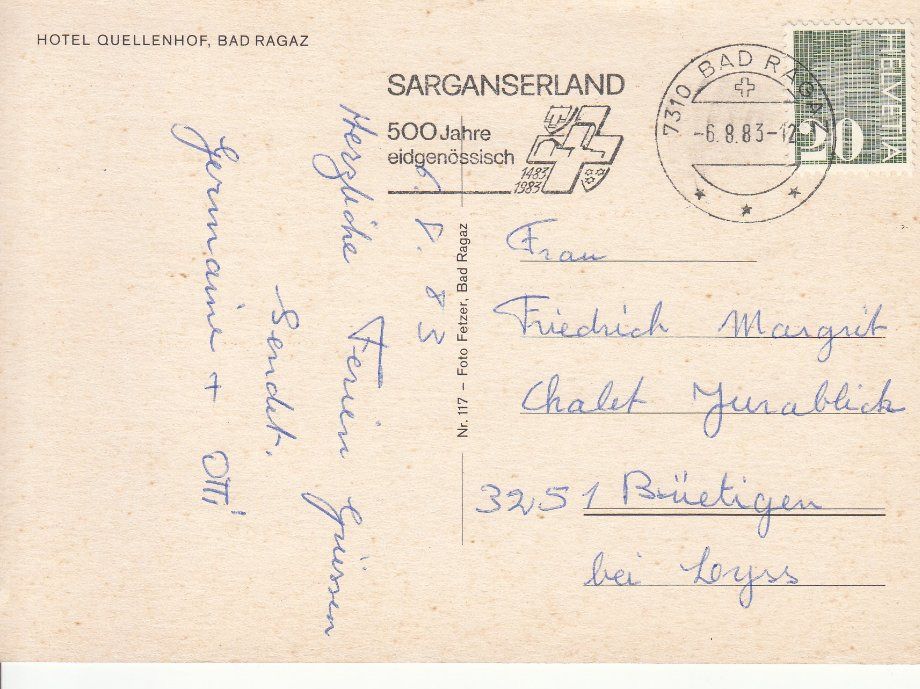 HOTEL QUELLENHOF, BAD RAGAZ
SARGANSERLAND
500 Jahre
eidgenössisch
1483
1983
7310 BAD RAGAZ
-6.8.83-12
HELVETIA
20
6. 8. 83
Herzliche Ferien Grüssen
Sendet.
Germaine + Otti
Nr. 117 – Foto Fetzer, Bad Ragaz
Frau
Friedrich Margrit
Chalet Jurablick
3251 Büetigen
bei Lyss